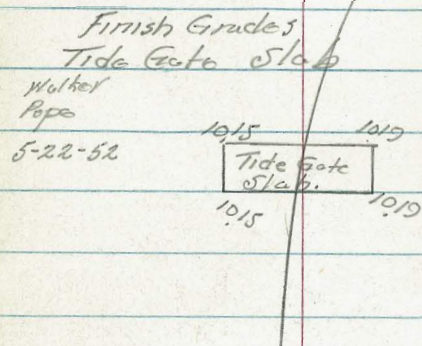 Finish Grades
Tide Gate Slab
Walker
Pope
5-22-52
10.15 10.19
Tide Gate
Slab.
10.15 10.19